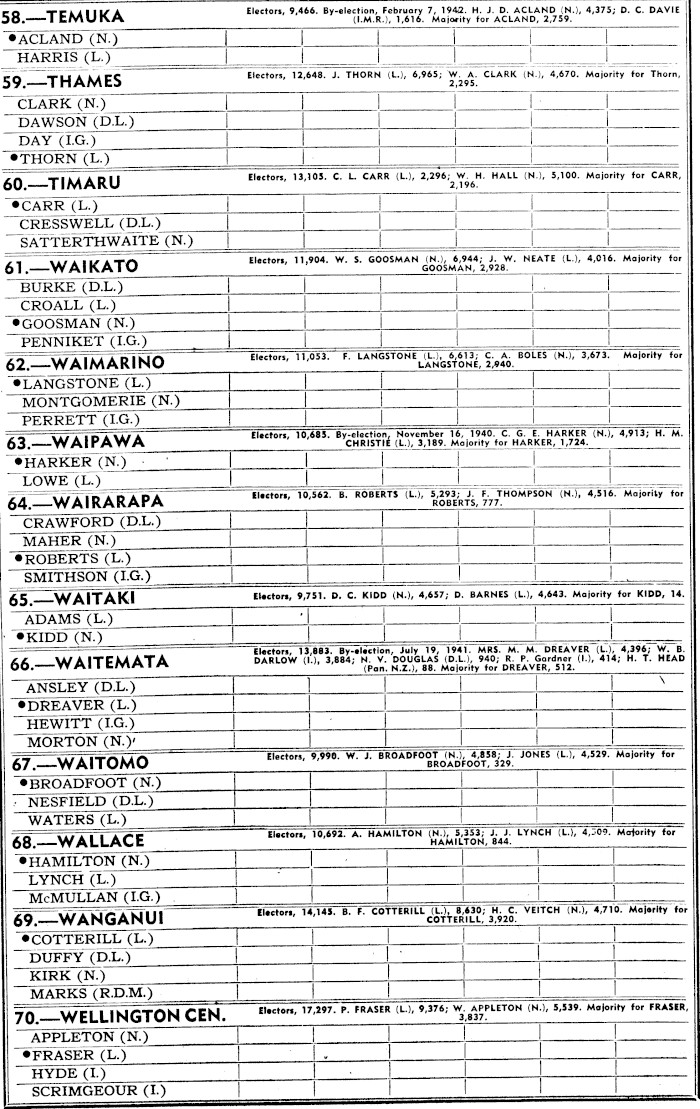 58.—TEMUKA
Electors, 9,466. By-election, February 7, 1942. H. J. D. ACLAND (N.), 4,375; D. C. DAVIE
(I.M.R.), 1,616. Majority for ACLAND, 2,759.
●ACLAND (N.)
HARRIS (L.)
59.—THAMES
Electors, 12,648. J. THORN (L.), 6,965; W. A. CLARK (N.), 4,670. Majority for Thorn,
2,295.
CLARK (N.)
DAWSON (D.L.)
DAY (I.G.)
●THORN (L.)
60.—TIMARU
Electors, 13,105. C. L. CARR (L.), 2,296; W. H. HALL (N.), 5,100. Majority for CARR,
2,196.
●CARR (L.)
CRESSWELL (D.L.)
SATTERTHWAITE (N.)
61.—WAIKATO
Electors, 11,904. W. S. GOOSMAN (N.), 6,944; J. W. NEATE (L.), 4,016. Majority for
GOOSMAN, 2,928.
BURKE (D.L.)
CROALL (L.)
●GOOSMAN (N.)
PENNIKET (I.G.)
62.—WAIMARINO
Electors, 11,053. F. LANGSTONE (L.), 6,613; C. A. BOLES (N.), 3,673. Majority for
LANGSTONE, 2,940.
●LANGSTONE (L.)
MONTGOMERIE (N.)
PERRETT (I.G.)
63.—WAIPAWA
Electors, 10,685. By-election, November 16, 1940. C. G. E. HARKER (N.), 4,913; H. M.
CHRISTIE (L.), 3,189. Majority for HARKER, 1,724.
●HARKER (N.)
LOWE (L.)
64.—WAIRARAPA
Electors, 10,562. B. ROBERTS (L.), 5,293; J. F. THOMPSON (N.), 4,516. Majority for
ROBERTS, 777.
CRAWFORD (D.L.)
MAHER (N.)
●ROBERTS (L.)
SMITHSON (I.G.)
65.—WAITAKI
Electors, 9,751. D. C. KIDD (N.), 4,657; D. BARNES (L.), 4,643. Majority for KIDD, 14.
ADAMS (L.)
●KIDD (N.)
66.—WAITEMATA
Electors, 13,883. By-election, July 19, 1941. MRS. M. M. DREAVER (L.), 4,396; W. B.
DARLOW (I.), 3,884; N. V. DOUGLAS (D.L.), 940; R. P. Gardner (I.), 414; H. T. HEAD
(Pan. N.Z.), 88. Majority for DREAVER, 512.
ANSLEY (D.L.)
●DREAVER (L.)
HEWITT (I.G.)
MORTON (N.)
67.—WAITOMO
Electors, 9,990. W. J. BROADFOOT (N.), 4,858; J. JONES (L.), 4,529. Majority for
BROADFOOT, 329.
●BROADFOOT (N.)
NESFIELD (D.L.)
WATERS (L.)
68.—WALLACE
Electors, 10,692. A. HAMILTON (N.), 5,353; J. J. LYNCH (L.), 4,509. Majority for
HAMILTON, 844.
●HAMILTON (N.)
LYNCH (L.)
McMULLAN (I.G.)
69.—WANGANUI
Electors, 14,145. B. F. COTTERILL (L.), 8,630; H. C. VEITCH (N.), 4,710. Majority for
COTTERILL, 3,920.
●COTTERILL (L.)
DUFFY (D.L.)
KIRK (N.)
MARKS (R.D.M.)
70.—WELLINGTON CEN.
Electors, 17,297. P. FRASER (L.), 9,376; W. APPLETON (N.), 5,539. Majority for FRASER,
3,837.
APPLETON (N.)
●FRASER (L.)
HYDE (I.)
SCRIMGEOUR (I.)